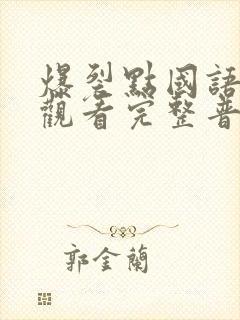 爆裂點國語
觀看完整普
郭金蘭